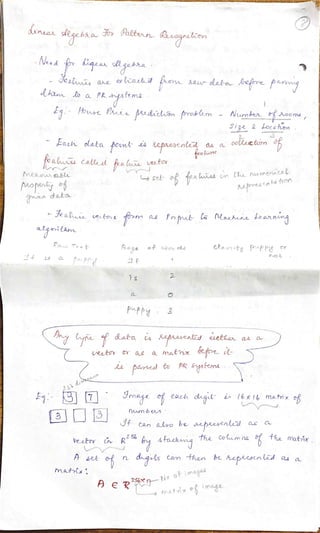 Linear Algebra For Pattern Recognition
Need for Linear Algebra:
- Features are extracted from raw data before passing
them to a PR systems.
Eg:- House Price prediction problem - Number of rooms,
Size & Location
- Each data point is represented as a collection of
features called feature vector
feature
Measurable
property of
given data
set of features in the numerical
representation
- Feature vectors form as Input to Machine Learning
algorithm
Raw Text Bags of words Classify puppy or
not.
It is a puppy It 1
Is 2
a 0
puppy. 3
Any type of data is represented either as a
vector or as a matrix before it
is passed to PR systems.
Eg:- 3 7 Image of each digit is 16x16 matrix of
numbers
3 3
It can also be represented as a
vector in R256 by stacking the columns of the matrix.
A set of n digits can then be represented as a
matrix:
A ∈ R256xn No of images
matrix of image